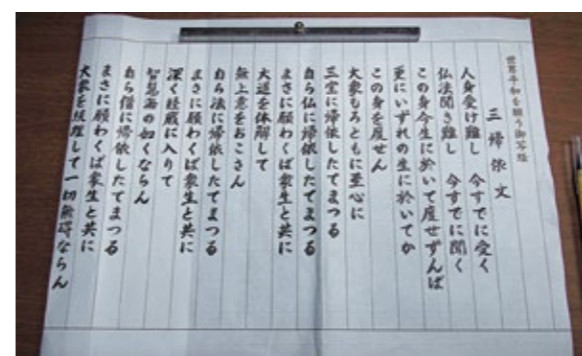 世界平和を願う御写経
三帰依文
人身受け難し 今すでに受く
仏法聞き難し 今すでに聞く
この身今生に於いて度せずんば
更にいずれの生に於いてか
この身を度せん
大衆もろともに至心に
三宝に帰依したてまつる
自ら仏に帰依したてまつる
まさに願わくば衆生と共に
大道を体解して
無上意をおこさん
自ら法に帰依したてまつる
まさに願わくば衆生と共に
深く経蔵に入りて
智慧海の如くならん
自ら僧に帰依したてまつる
まさに願わくば衆生と共に
大衆を統理して一切無碍ならん